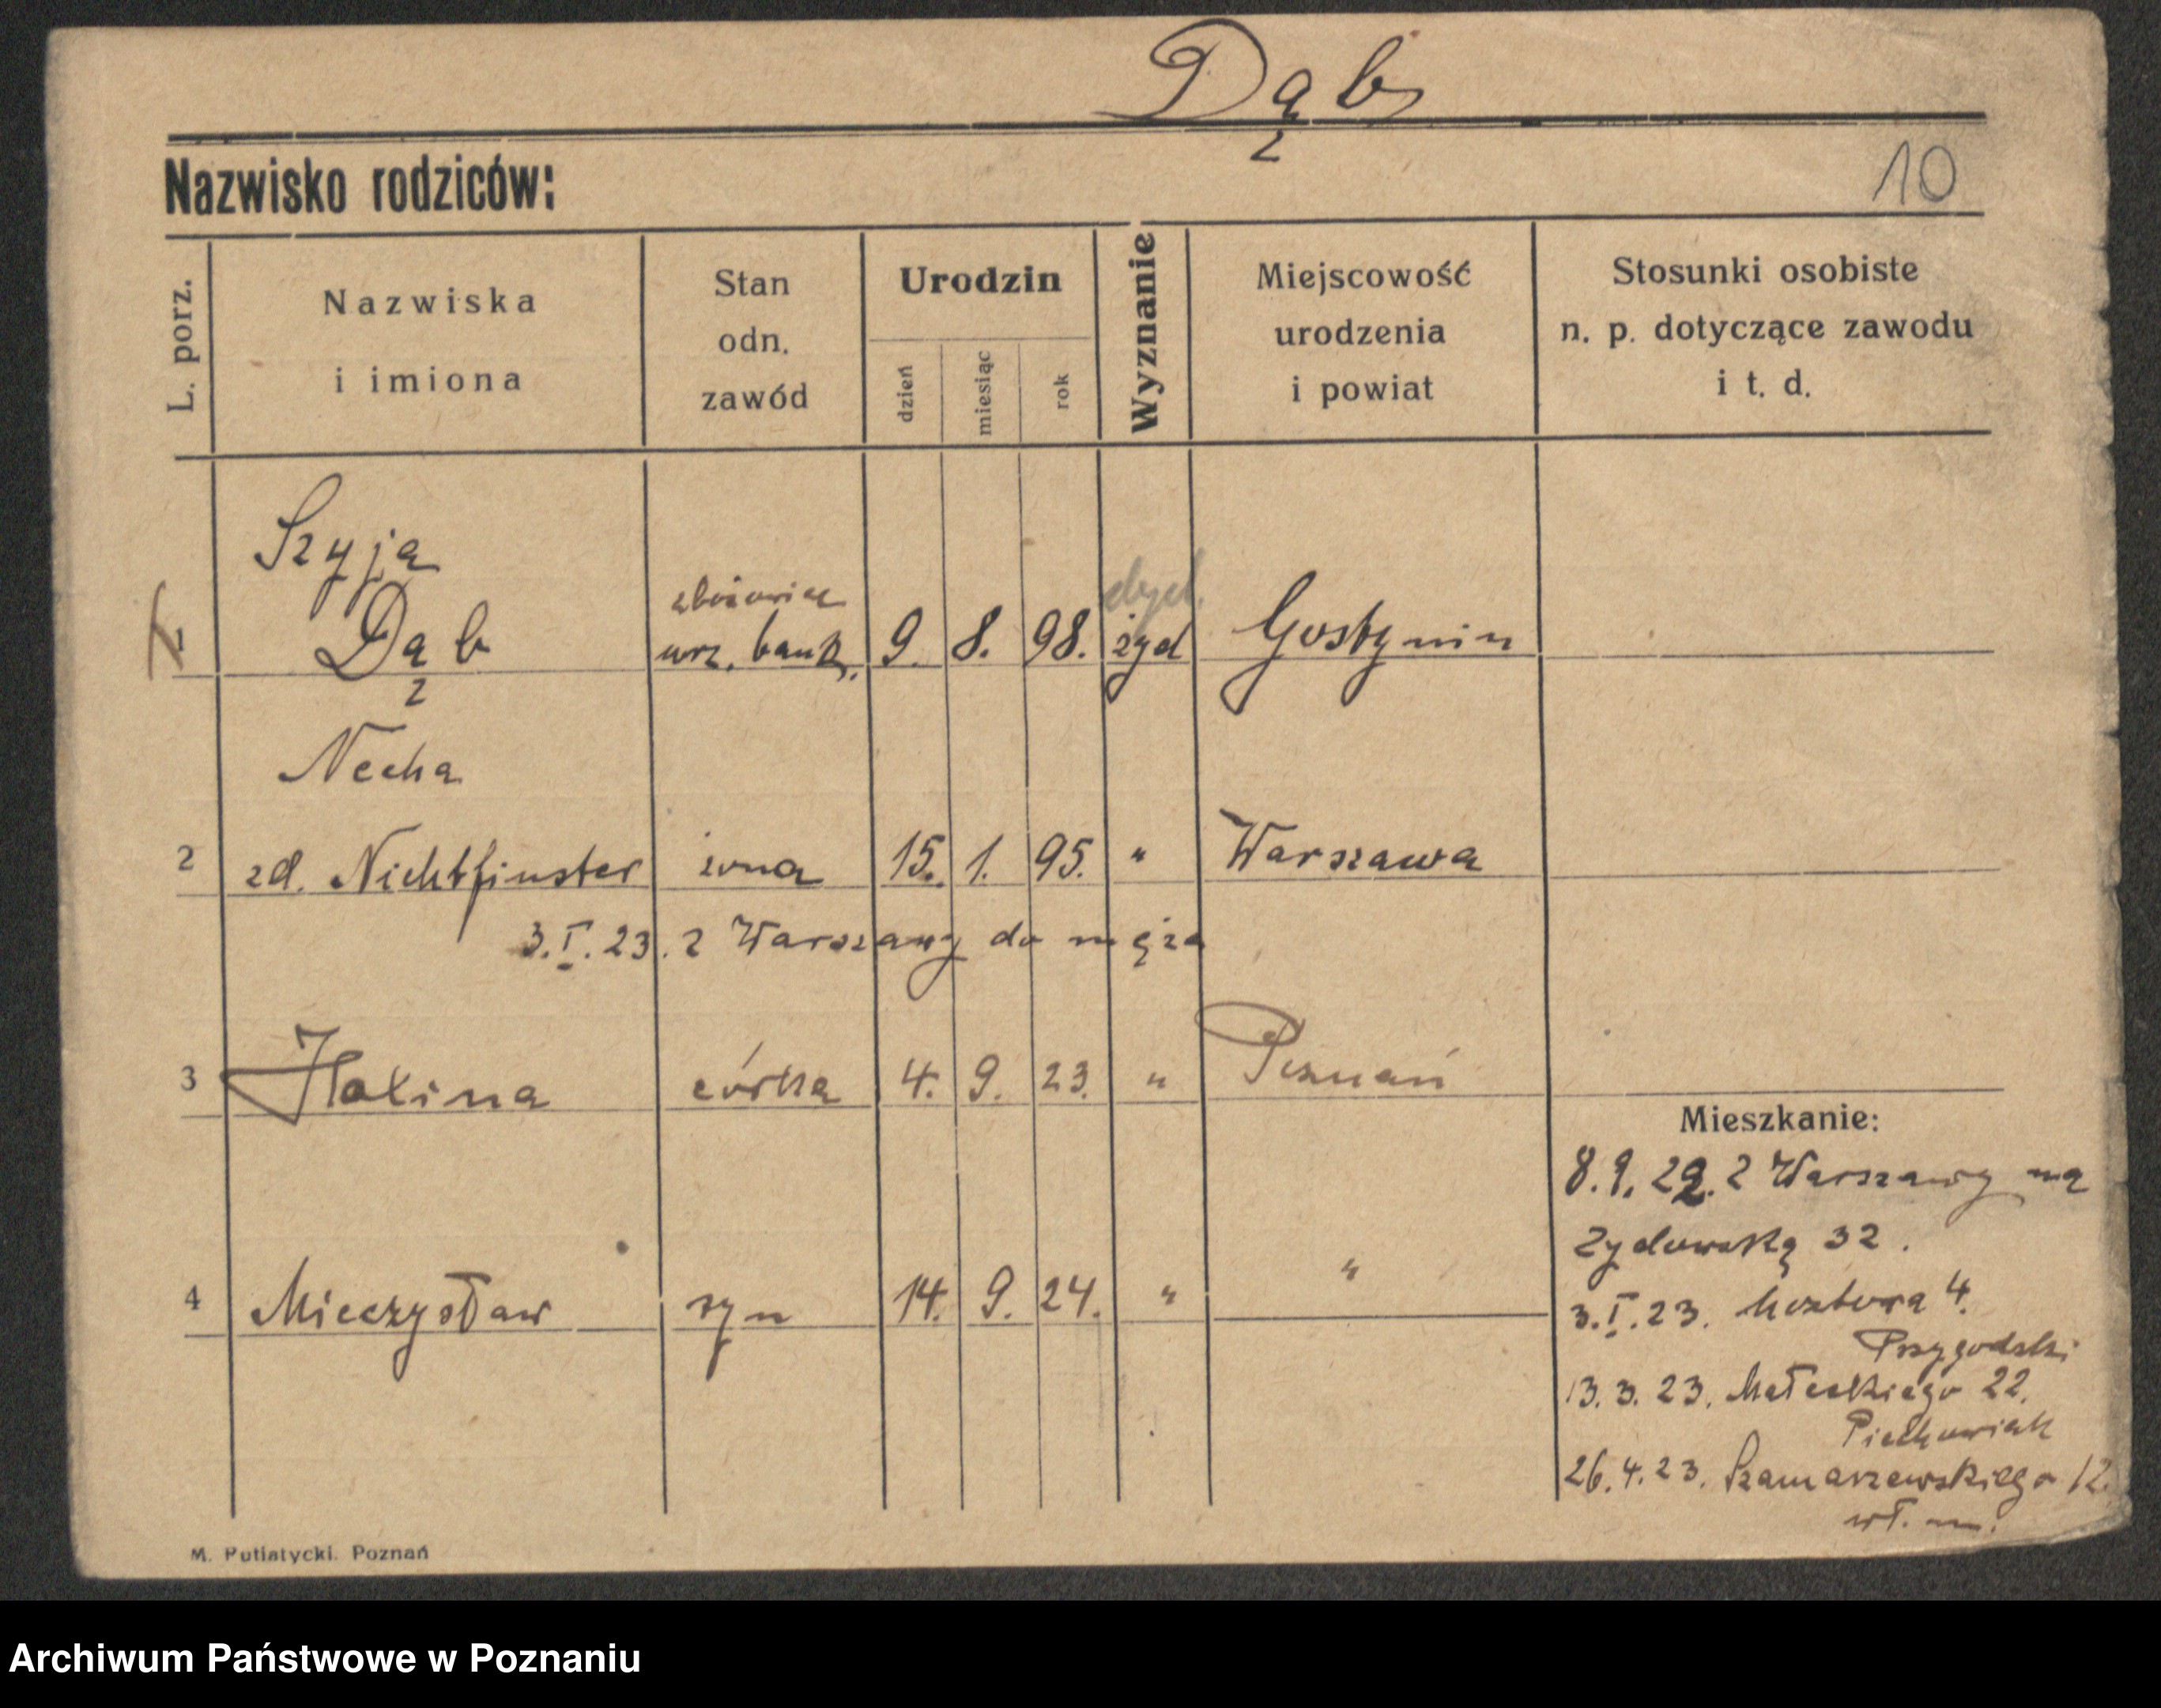 Dąb
10
Nazwisko rodziców:
L. porz.
Nazwiska
i imiona
Stan
odn.
zawód
Urodzin
dzień
miesiąc
rok
Wyznanie
Miejscowość
urodzenia
i powiat
Stosunki osobiste
n. p. dotyczące zawodu
i t. d.
Szyja
1 Dąb
urz. bank. 9. 8. 98. żyd Gostynin
Necha
2 zd. Nichtfinster żona 15. 1. 95. " Warszawa
3.I.23. z Warszawy do męża
3 Halina córka 4. 9. 23. " Poznań
4 Mieczysław syn 14. 9. 24. " "
Mieszkanie:
8.9.22. z Warszawy na
Żydowską 32.
3.I.23. 4.
Przygodzki
13.3.23. Małeckiego 22.
Piechowiak
26.4.23. Szamarzewskiego 12.
wł. m.
M. Putiatycki. Poznań
Archiwum Państwowe w Poznaniu